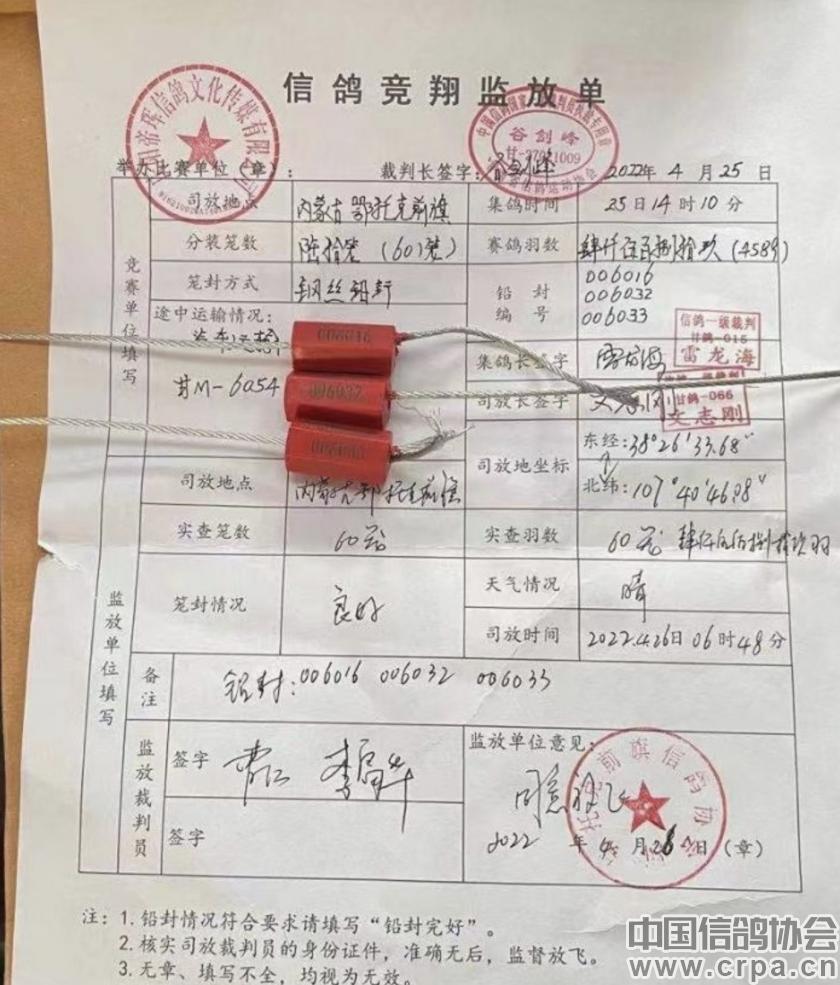 信鸽竞翔监放单
举办比赛单位（章）： 裁判长签字： 2022年4月25日
谷剑峰
竞赛单位填写
司放地点 内蒙古鄂托克前旗 集鸽时间 25日14时10分
分装笼数 陆拾笼（60笼） 赛鸽羽数 (4589)
笼封方式 钢丝铅封 铅封编号 006016
006032
006033
途中运输情况：
汽车运输
甘M-6054
006016
006032
集鸽长签字 雷龙海
信鸽一级裁判
甘鸽-015
雷龙海
司放长签字
甘鸽-066
文志刚
司放地坐标 东经：38°26′33.68″
北纬：107°40′46.98″
监放单位填写
司放地点 内蒙古鄂托克前旗
实查笼数 60笼 实查羽数 60笼
笼封情况 良好 天气情况 晴
司放时间 2022.4.26日06时48分
备注 铅封：006016 006032 006033
监放裁判员 签字
签字
监放单位意见：
同意放飞
2022年4月26日（章）
前旗信鸽协会
注：1.铅封情况符合要求请填写“铅封完好”。
2.核实司放裁判员的身份证件，准确无后，监督放飞。
3.无章、填写不全，均视为无效。
中国信鸽协会
www.crpa.cn